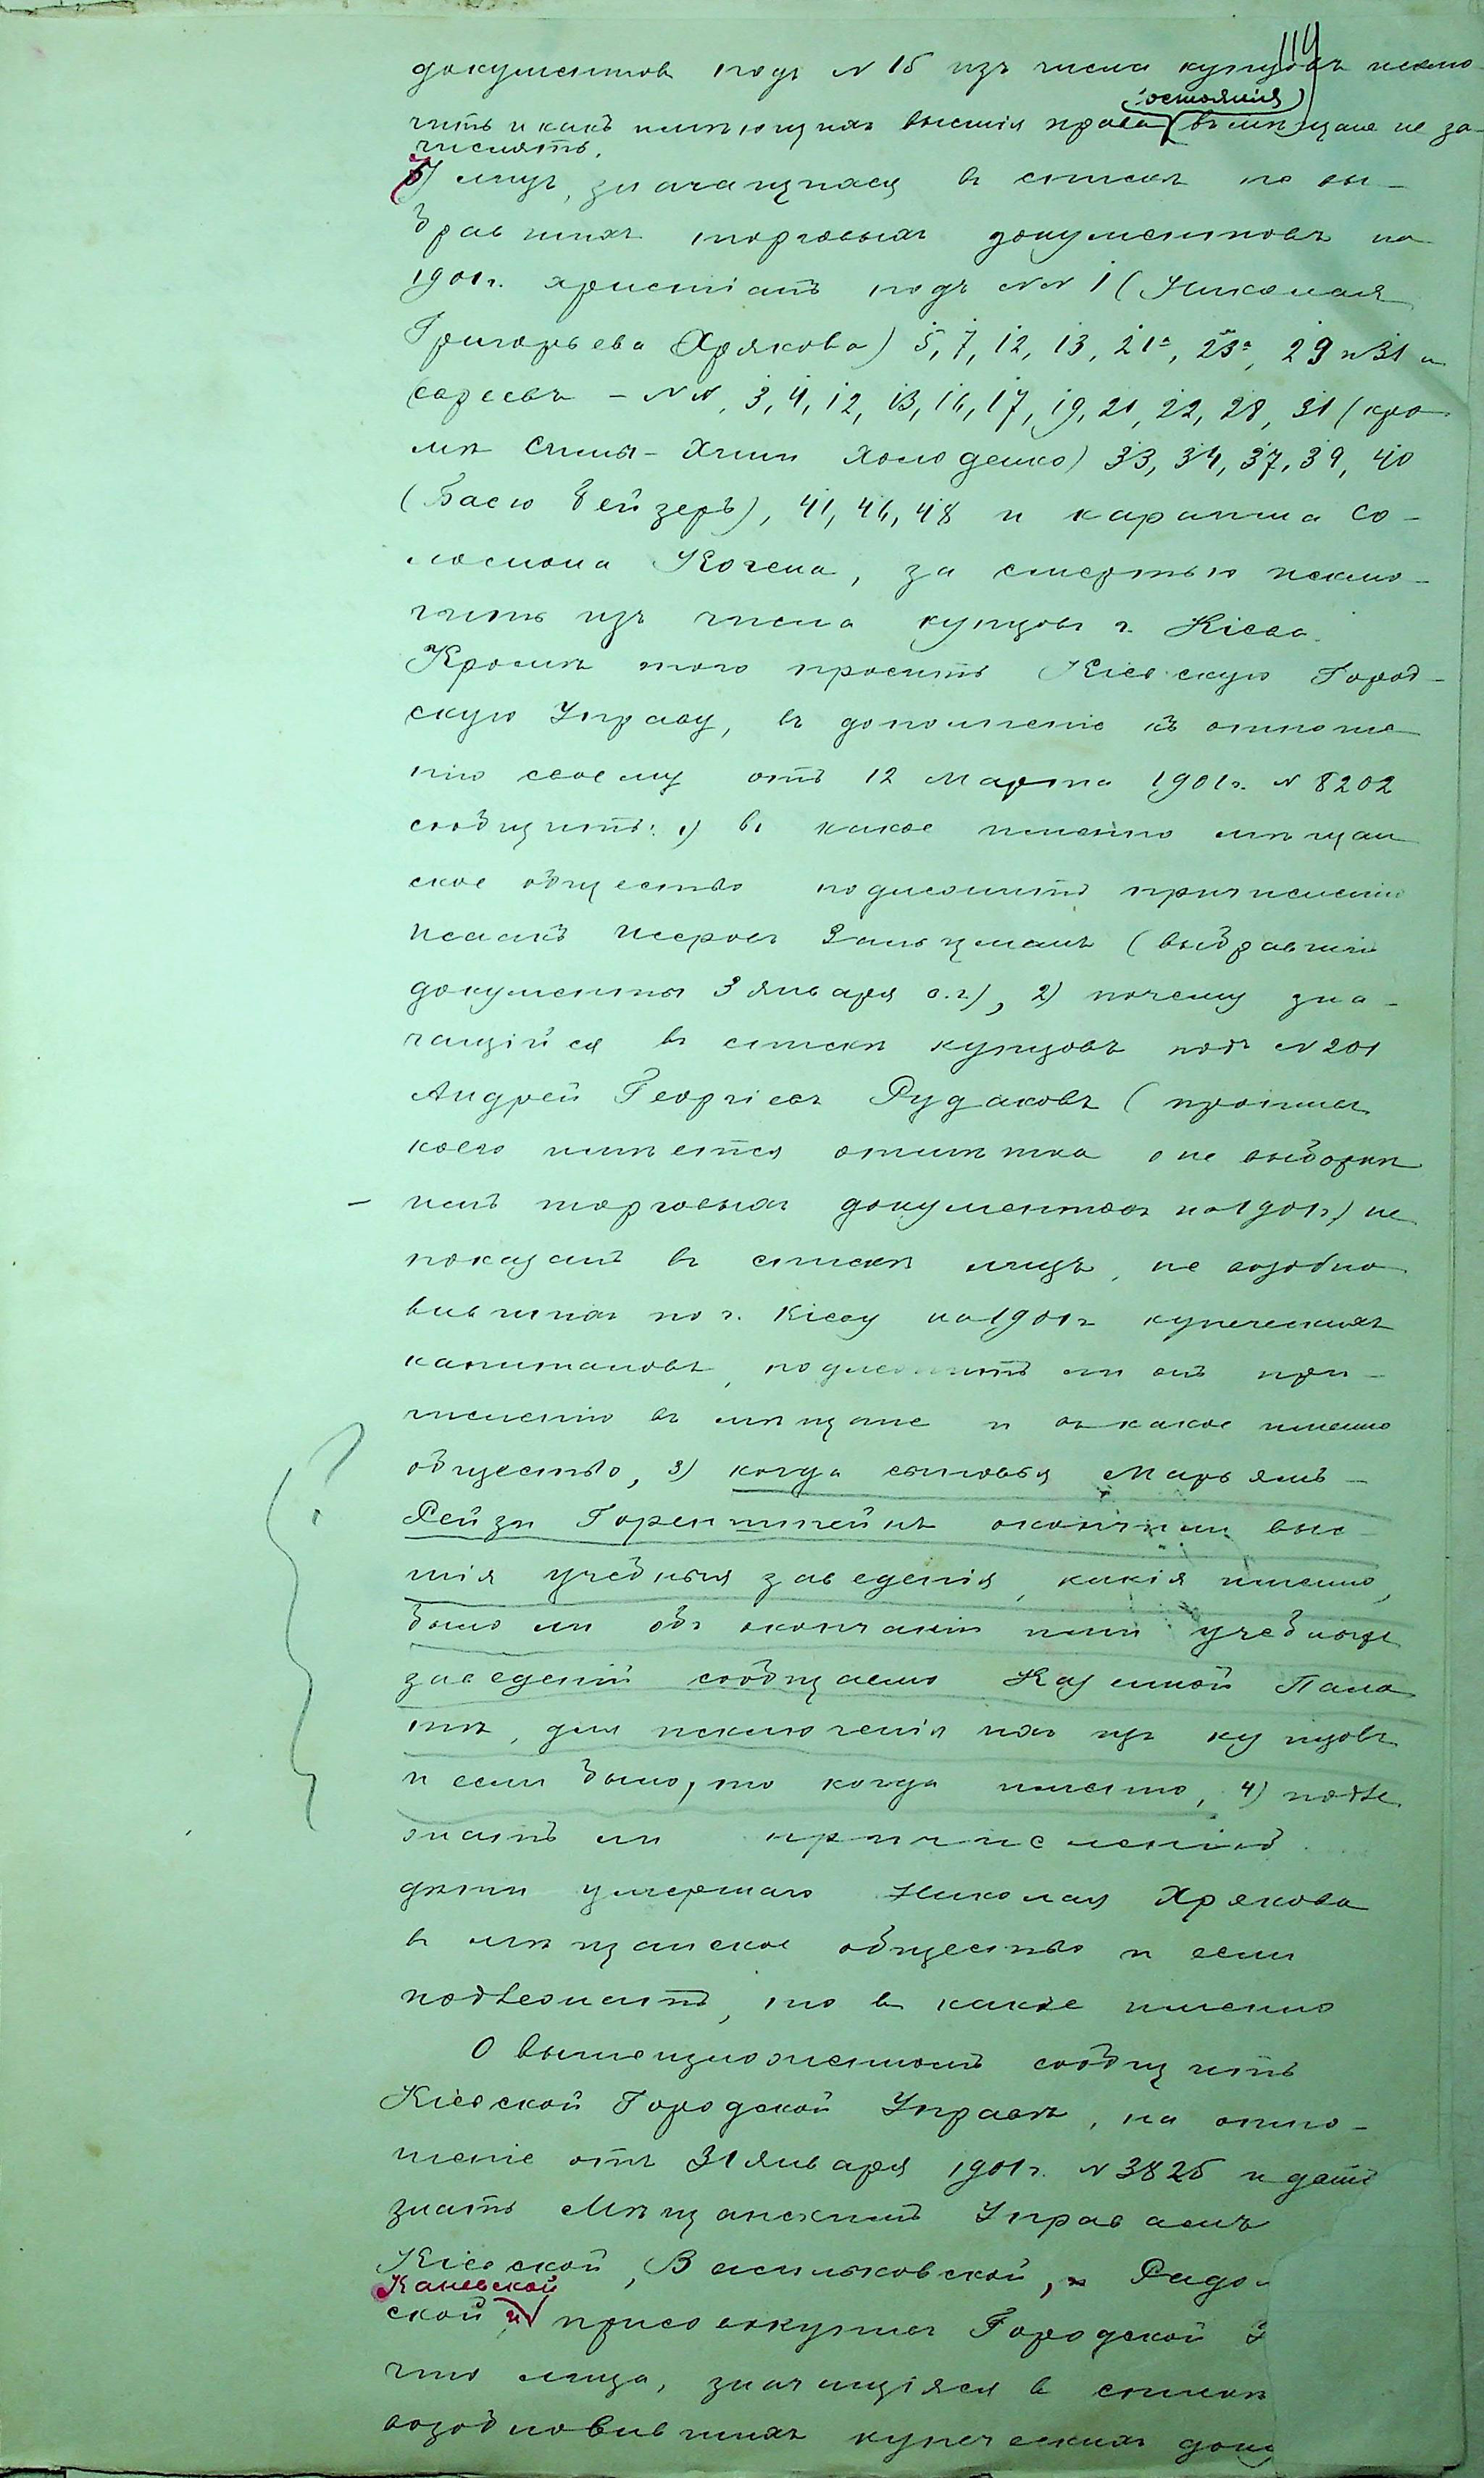 119
документов подъ № 15 изъ числа купцовъ исклю-
состоянія
чить и какъ имѣющихъ высшія права въ мѣщане не за-
числять.
5) лицъ, значащихся въ спискѣ не вы-
бравшихъ торговыхъ документовъ на
1901 г. христіанъ подъ №№ 1 (Николая
Григорьева Хрякова) 5, 7, 12, 13, 21а, 23а, 29 и 31 и
евреевъ – №№ 3, 4, 12, 13, 16, 17, 19, 21, 22, 28, 31 (кро
мѣ Симы-Хини Холоденко) 33, 34, 37, 39, 40
(Басю Вейзеръ), 41, 46, 48 и караима Со-
ломона Когена, за смертью исклю-
чить изъ числа купцовъ г. Кіева.
Кромѣ того просить Кіевскую Город-
скую Управу, въ дополненіе къ отноше
нію своему отъ 12 Марта 1901 г. № 8202
сообщить: 1) въ какое именно мѣщан
ское общество подлежитъ причисленію
Исаакъ Зальцманъ (выбравшій
документы 3 января с.г.), 2) почему зна-
чащійся въ спискѣ купцовъ подъ № 201
Андрей Георгіевъ Рудаковъ (противъ
коего имѣется отмѣтка о не выборкѣ
имъ торговыхъ документовъ на 1901 г.) не
показанъ въ спискѣ лицъ, не возобно
вившихъ по г. Кіеву на 1901 г. купеческихъ
капиталовъ, подлежитъ ли онъ при-
численію въ мѣщане и въ какое именно
общество, 3) когда сыновья Марьямъ-
Рейзи Горенштейнъ окончили выс-
шія учебныя заведенія, какія именно,
было ли объ окончаніи ими учебныхъ
заведеній сообщаемо Казенной Пала
тѣ, для исключенія ихъ изъ купцовъ
и если было, то когда именно, 4) подле
жатъ ли причисленію
дѣти умершаго Николая Хрякова
въ мѣщанское общество и если
подлежатъ, то въ какое именно
О вышеизложенномъ сообщить
Кіевской Городской Управѣ, на отно-
шеніе отъ 31 января 1901 г. № 3825 и дать
знать Мѣщанскимъ Управамъ
Кіевской, Васильковской, Радо
Каневской
ской и присовокупивъ Городской У
что лица, значащіяся въ спискѣ
возобновившихъ купеческихъ доку